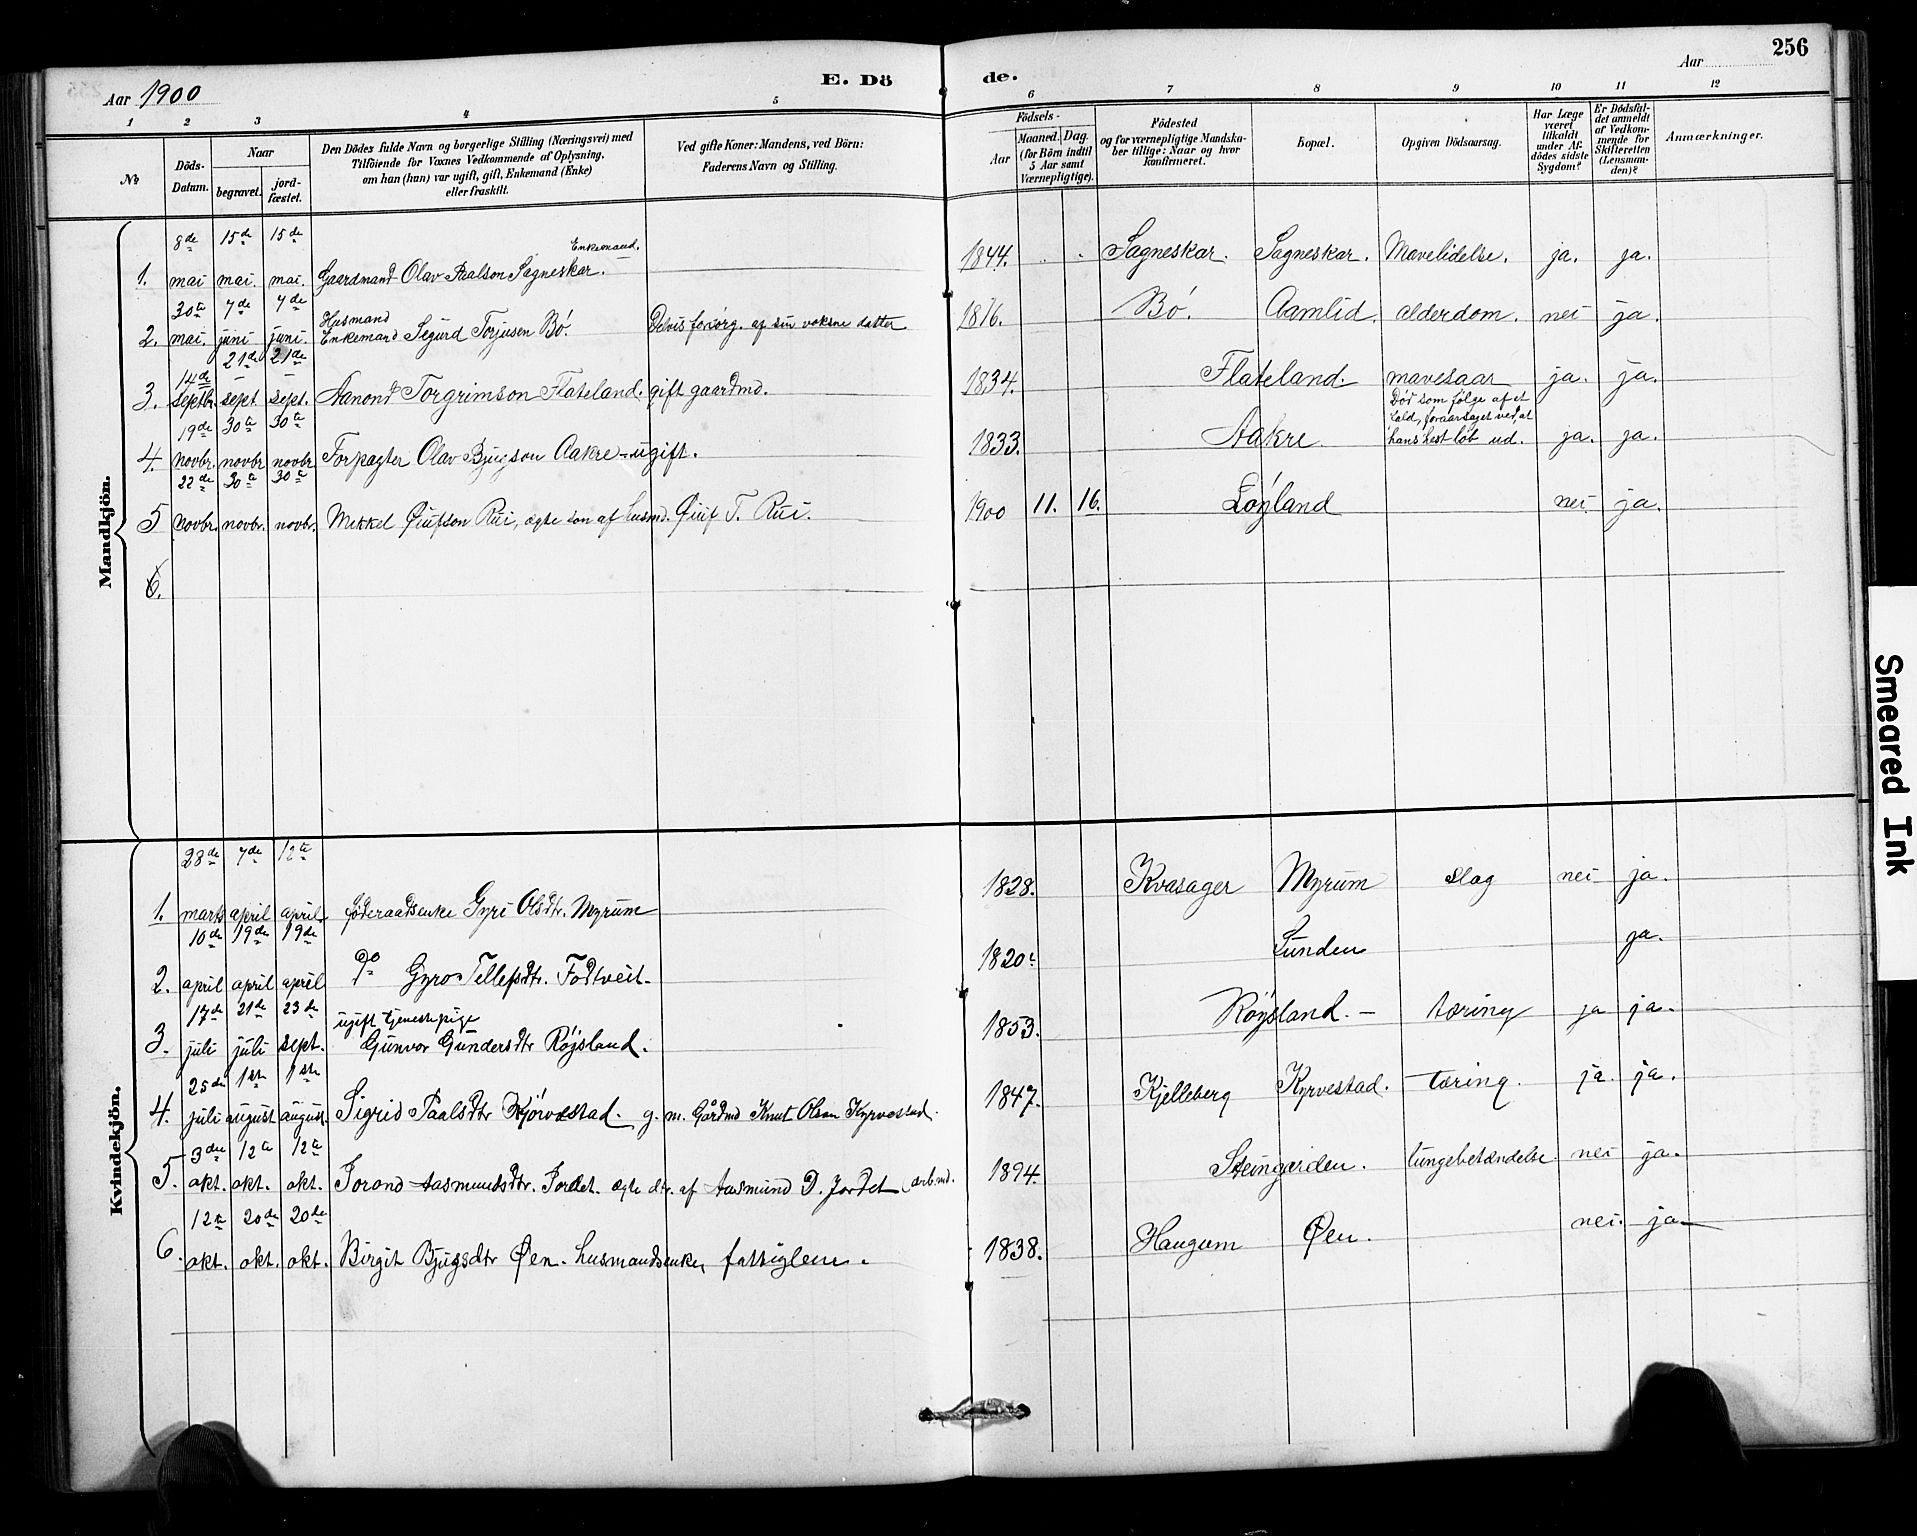 256
E. Döde.
Aar 1900
Aar
1 2 3 4 5 6 7 8 9 10 11 12
№
Döds-Datum.
Naar
begravet.
jordfæstet.
Den Dödes fulde Navn og borgerlige Stilling (Næringsvei) med
Tilföiende for Voxnes Vedkommende af Oplysning,
om han (hun) var ugift, gift, Enkemand (Enke)
eller fraskilt.
Ved gifte Koner: Mandens, ved Börn:
Faderens Navn og Stilling.
Födsels-
Aar
Maaned. Dag.
(for Börn indtil
5 Aar samt
Værnepligtige).
Födested
og for værnepligtige Mandska-
ber tillige: Naar og hvor
konfirmeret.
Bopæl.
Opgiven Dödsaarsag.
Har Læge
været
tilkaldt
under Af-
dödes sidste
Sygdom?
Er Dödsfal-
det anmeldt
af Vedkom-
mende for
Skifteretten
(Lensman-
den)?
Anmærkninger.
Mandkjön.
8de 15de 15de Enkemand.
1. mai mai. mai. Gaardmand Olav Paalson Sagneskar. 1844. Sagneskar. Sagneskar. Mavelidelse. ja. ja.
30te 7de 7de Husmand
2. mai. juni juni. Enkemand Sigurd Torjusen Bö. Delvis forsörg. af sin voksne datter 1816. Bö. Aamlid. alderdom. nei ja.
14de 21de 21de
3. septbr. sept sept. Aanond Torgrimson Flateland. gift gaardmd. 1834. Flateland. mavesaar ja. ja.
19de 30te 30te Död som følge af et
fald, foraarsaget ved, at
4. novbr. novbr novbr Forpagter Olav Bjugson Aakre - ugift. 1833. Aakre hans hest løb ud. ja. ja.
22de 30te 30te
5 novbr. novbr. novbr. Mikkel Gjufson Rui, ægte søn af husmd. Gjuf T. Rui. 1900 11. 16. Löyland nei ja.
6.
Kvindekjön.
28de 7de 12te
1. marts april april. föderaadsenke Gyri Olsdtr. Myrum 1828. Kvasager Myrum slag nei ja.
10de 19de 19de
2. april april april do Gyro Tellefsdtr. Fodtveit 1820. Lunden ja.
17de 21de 23de ugift tjenestepige
3. juli juli sept. Gunvor Gundersdtr Röjsland. 1853. Röjsland. — tæring ja ja.
25de 1ste 1ste
4. juli august august. Sigrid Paalsdtr Kjörvestad. g. m. Gårdmd Knut Olson Kyrvestad. 1847. Kjelleberg Kyrvestad. tæring. ja. ja.
3die 12te 12te
5. okt. okt. okt. Torond Aasmundsdtr. Jordet. ægte dtr. af Aasmund D. Jordet (arb.md. 1894. Steingarden. lungebetændelse nei ja.
12te 20de 20de
6. okt. okt. okt. Birgit Bjugsdtr Øen. husmandsenke, fattiglem. 1838. Haugum Øen. nei. ja
Smeared Ink